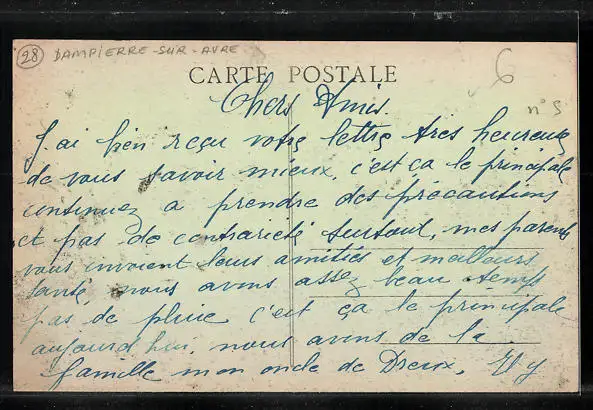 28 DAMPIERRE-SUR-AVRE
6
CARTE POSTALE
n° 5
Chers Amis.
J'ai bien reçu votre lettre très heureux
de vous savoir mieux, c'est ça le principale
continuez a prendre des précautions
et pas de contrariété surtout, mes parents
vous envoient leurs amitiés et meilleurs
santé, nous avons assez beau temps
pas de pluie c'est ça le principale
aujourd'hui nous avons de la
famille mon oncle de Dreux,